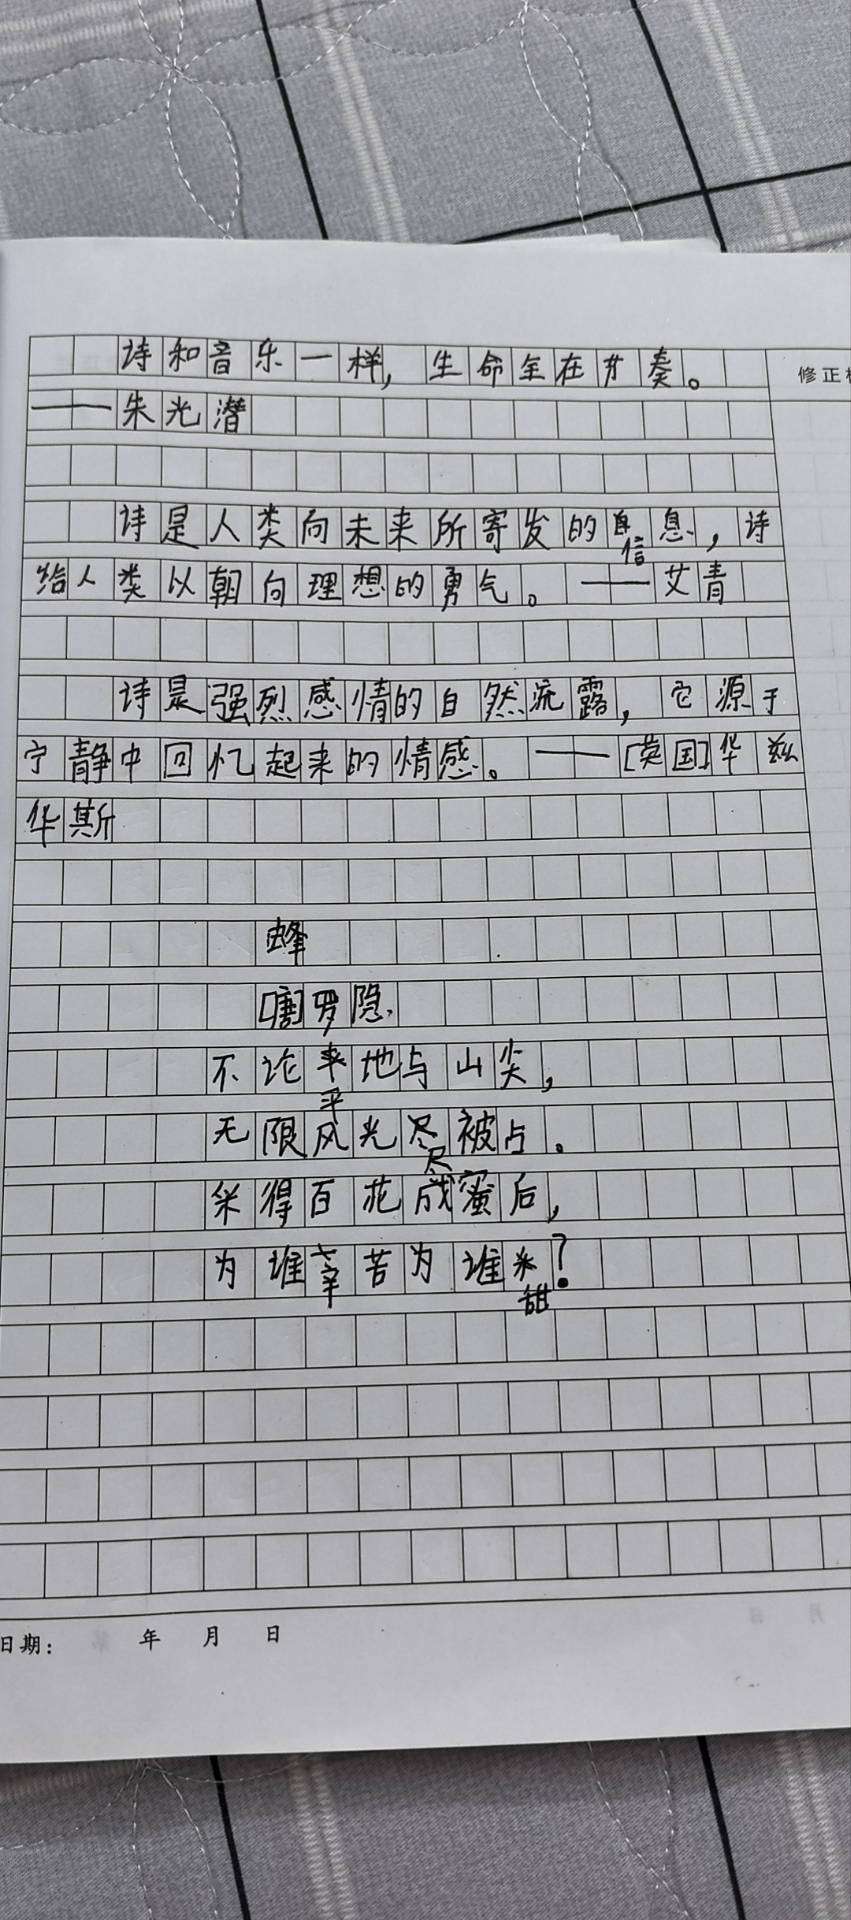 诗和音乐一样，生命全在节奏。
修正
——朱光潜
诗是人类向未来所寄发的信息，诗
给人类以朝向理想的勇气。——艾青
诗是强烈感情的自然流露，它源于
宁静中回忆起来的情感。——[英国]华兹
华斯
蜂
[唐]罗隐
不论平地与山尖，
无限风光尽被占。
采得百花成蜜后，
为谁辛苦为谁甜？
日期： 年 月 日